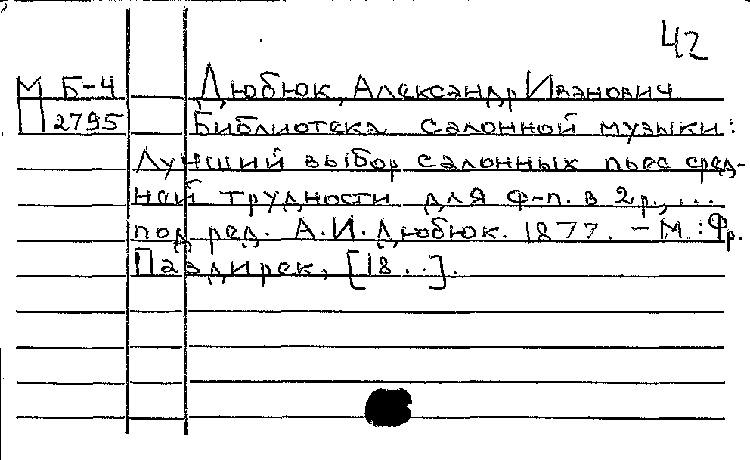 42
М Б-4 Дюбюк, Александр Иванович
П 2795 Библиотека салонной музыки:
Лучший выбор салонных пьес сред-
ней трудности для ф-п. в 2 р., ...
под ред. А.И. Дюбюк. 1877. - М.: Фр.
Паздирек, [18..].